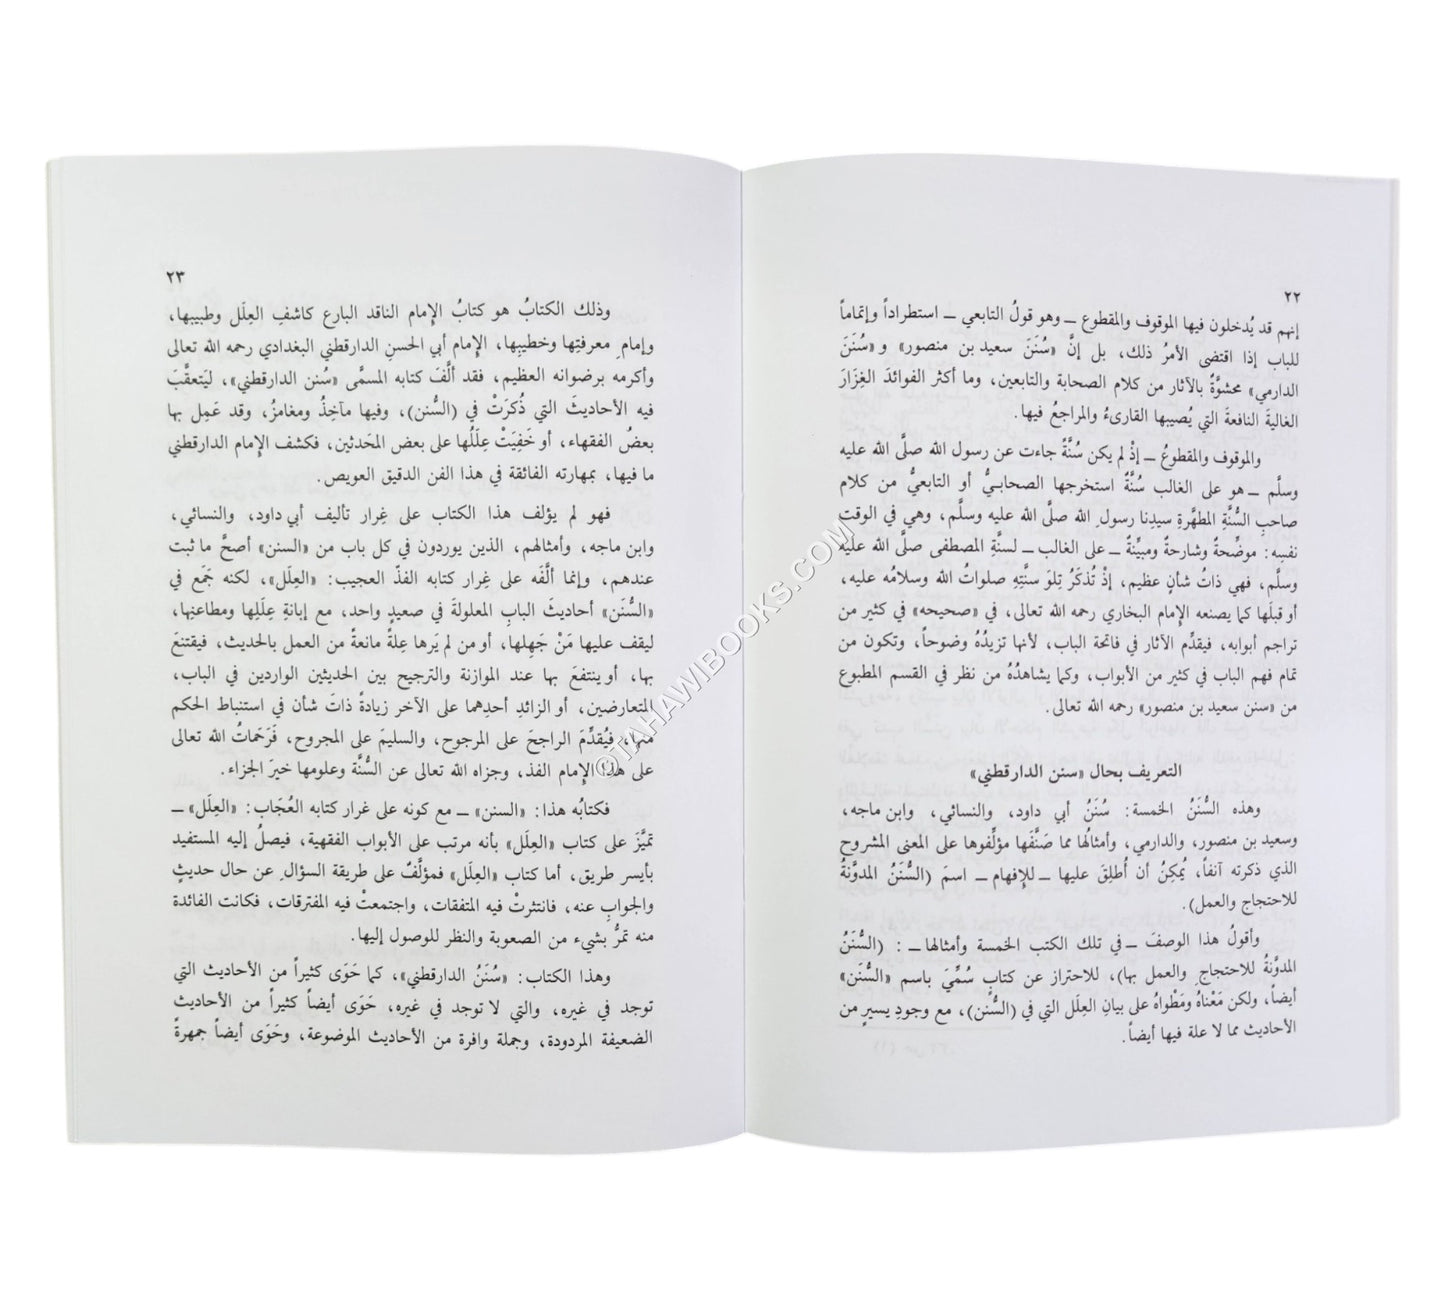 ٢٢
إنهم قد يُدخلون فيها الموقوف والمقطوع ــ وهو قولُ التابعي ــ استطراداً وإتماماً
للباب إذا اقتضى الأمرُ ذلك، بل إنَّ «سُنَنَ سعيد بن منصور» و«سُنَنَ
الدارمي» محشوَّةٌ بالآثار من كلام الصحابة والتابعين، وما أكثر الفوائدَ الغِزَارَ
الغاليةَ النافعةَ التي يُصيبها القارىءُ والمراجعُ فيها.
والموقوف والمقطوعُ ــ إذْ لم يكن سُنَّةً جاءت عن رسول الله صلَّى الله عليه
وسلَّم ــ هو على الغالب سُنَّةٌ استخرجها الصحابيُّ أو التابعيُّ من كلام
صاحبِ السُّنَّةِ المطهَّرةِ سيدِنا رسولِ الله صلَّى الله عليه وسلَّم، وهي في الوقت
نفسِه: موضِّحةٌ وشارحةٌ ومبيِّنةٌ ــ على الغالب ــ لسنَّةِ المصطفى صلَّى الله عليه
وسلَّم، فهي ذاتُ شأنٍ عظيم، إذْ تُذكَرُ تِلوَ سنَّتِهِ صلواتُ الله وسلامُه عليه،
أو قبلَها كما يصنعه الإمام البخاري رحمه الله تعالى، في «صحيحه» في كثير من
تراجم أبوابه، فيقدِّم الآثار في فاتحة الباب، لأنها تزيدُهُ وضوحاً، وتكون من
تمام فهم الباب في كثير من الأبواب، وكما يشاهدُهُ من نظر في القسم المطبوع
من «سنن سعيد بن منصور» رحمه الله تعالى.
التعريف بحال «سنن الدارقطني»
وهذه السُّنَنُ الخمسة: سُنَنُ أبي داود، والنسائي، وابن ماجه،
وسعيد بن منصور، والدارمي، وأمثالُها مما صَنَّفَها مؤلِّفوها على المعنى المشروح
الذي ذكرته آنفاً، يُمكِنُ أن أُطلِقَ عليها ــ للإفهام ــ اسمَ (السُّنَنُ المدوَّنةُ
للاحتجاج والعمل).
وأقولُ هذا الوصفَ ــ في تلك الكتب الخمسة وأمثالها ــ : (السُّنَنُ
المدوَّنةُ للاحتجاجِ والعمل بها)، للاحتراز عن كتابٍ سُمِّيَ باسم «السُّنَن»
أيضاً، ولكن مَعْناهُ ومَطْواهُ على بيانِ العِلَل التي في (السُّنن)، مع وجودِ يسيرٍ من
الأحاديث مما لا علة فيها أيضاً.
٢٣
وذلك الكتابُ هو كتابُ الإمام الناقد البارع كاشفِ العِلَل وطبيبها،
وإمامِ معرفتِها وخطيبِها، الإمام أبي الحسنِ الدارقطني البغدادي رحمه الله تعالى
وأكرمه برضوانه العظيم، فقد ألَّفَ كتابه المسمَّى «سُنن الدارقطني»، ليَتعقَّبَ
فيه الأحاديثَ التي ذُكرَتْ في (السُّنن)، وفيها مآخِذُ ومغامزُ، وقد عَمِل بها
بعضُ الفقهاء، أو خَفِيَتْ عِلَلُها على بعض المحَدثين، فكشف الإمام الدارقطني
ما فيها، بمهارته الفائقة في هذا الفن الدقيق العويص.
فهو لم يؤلف هذا الكتاب على غِرار تأليف أبي داود، والنسائي،
وابن ماجه، وأمثالهم، الذين يوردون في كل باب من «السنن» أصحَّ ما ثبت
عندهم، وإنما ألَّفَه على غِرار كتابه الفذّ العجيب: «العِلَل»، لكنه جَمَع في
«السُّنَن» أحاديثَ البابِ المعلولةَ في صعيدٍ واحد، مع إبانةِ عِلَلِها ومطاعنِها،
ليقف عليها مَنْ جَهِلها، أو من لم يَرها علةً مانعةً من العمل بالحديث، فيقتنعَ
بها، أو ينتفعَ بها عند الموازنة والترجيح بين الحديثين الواردين في الباب،
المتعارضين، أو الزائدِ أحدِهما على الآخر زيادةً ذاتَ شأن في استنباط الحكم
منها، فيُقدِّمَ الراجحَ على المرجوح، والسليمَ على المجروح، فَرَحَماتُ الله تعالى
على هذا الإمام الفذ، وجزاه الله تعالى عن السُّنَّة وعلومها خيرَ الجزاء.
فكتابُه هذا: «السنن» ــ مع كونه على غرار كتابه العُجَاب: «العِلَل» ــ
تميَّزَ على كتاب «العِلَل» بأنه مرتب على الأبواب الفقهية، فيصلُ إليه المستفيد
بأيسر طريق، أما كتاب «العِلَل» فمؤلَّفٌ على طريقة السؤالِ عن حال حديثٍ
والجوابِ عنه، فانتثرتْ فيه المتفقات، واجتمعتْ فيه المفترقات، فكانت الفائدة
منه تمرُّ بشيء من الصعوبة والنظر للوصول إليها.
وهذا الكتاب: «سُنَنُ الدارقطني»، كما حَوَى كثيراً من الأحاديث التي
توجد في غيره، والتي لا توجد في غيره، حَوَى أيضاً كثيراً من الأحاديث
الضعيفة المردودة، وجملة وافرة من الأحاديث الموضوعة، وحَوَى أيضاً جمهرةً
©TAHAWIBOOKS.COM